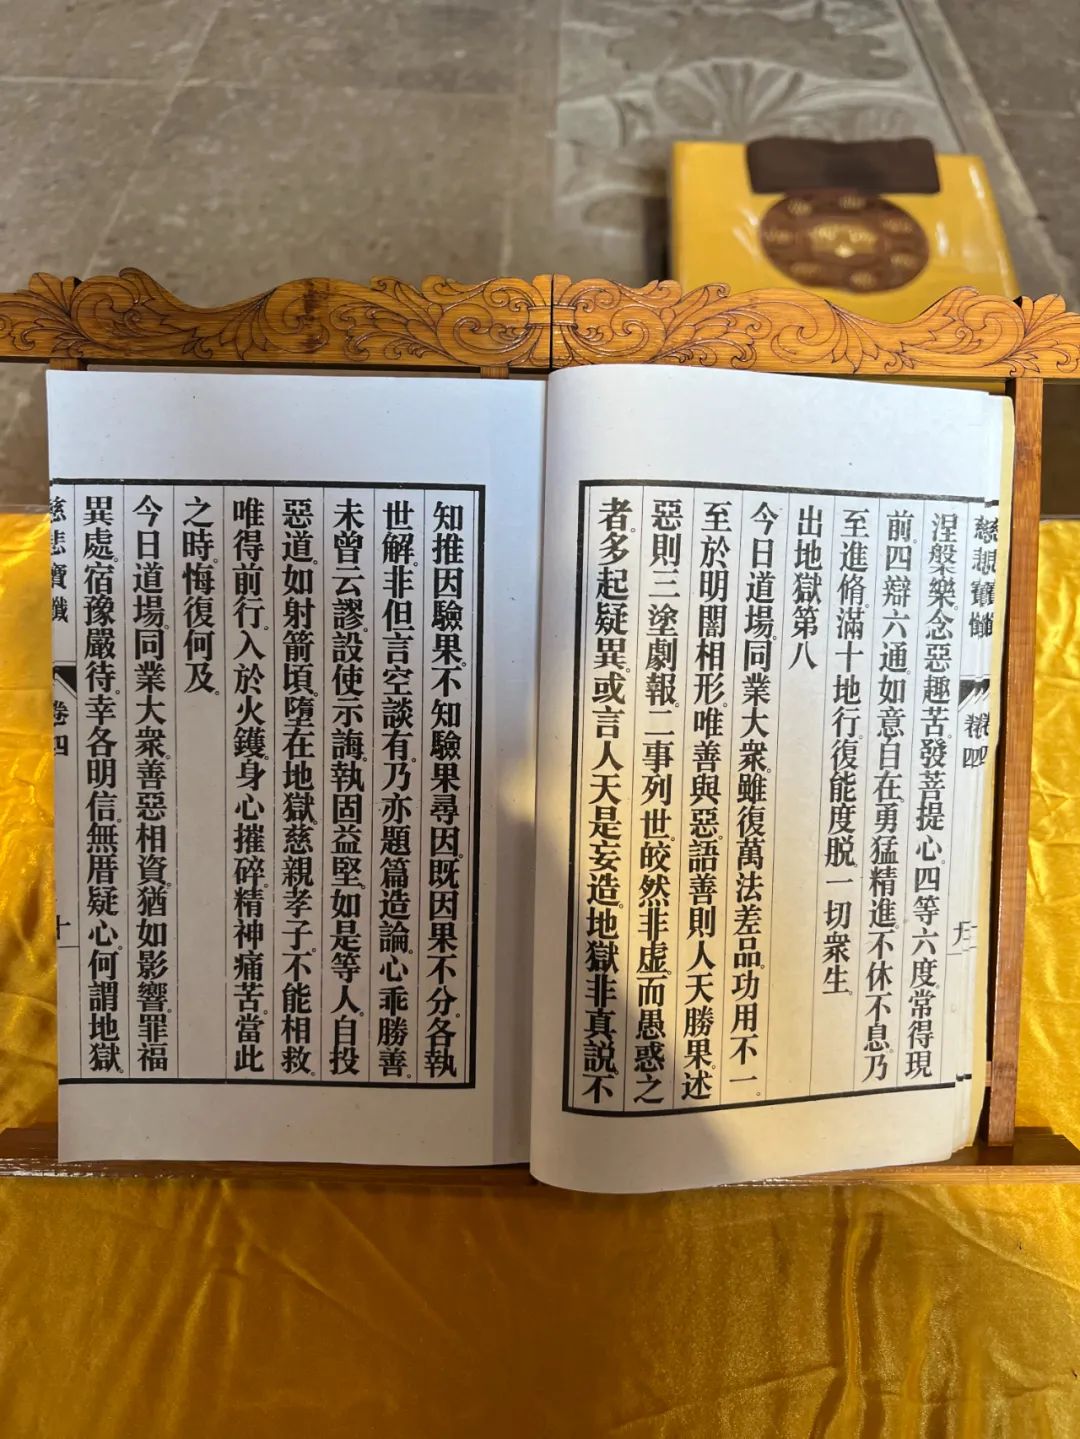 慈悲寶懺 卷四
涅槃樂。念惡趣苦。發菩提心。四等六度。常得現
前。四辯六通。如意自在。勇猛精進。不休不息。乃
至進脩滿十地行。復能度脫一切衆生。
出地獄第八
今日道場。同業大衆。雖復萬法差品。功用不一。
至於明闇相形。唯善與惡。語善則人天勝果。述
惡則三塗劇報。二事列世。皎然非虛。而愚惑之
者。多起疑異。或言人天是妄造。地獄非真説。不
知推因驗果。不知驗果尋因。既因果不分。各執
世解。非但言空談有。乃亦題篇造論。心乖勝善。
未曾云謬。設使示誨。執固益堅。如是等人。自投
惡道。如射箭頃。墮在地獄。慈親孝子。不能相救。
唯得前行。入於火鑊。身心摧碎。精神痛苦。當此
之時。悔復何及。
今日道場。同業大衆。善惡相資。猶如影響。罪福
異處。宿豫嚴待。幸各明信。無厝疑心。何謂地獄。
慈悲寶懺 卷四 十